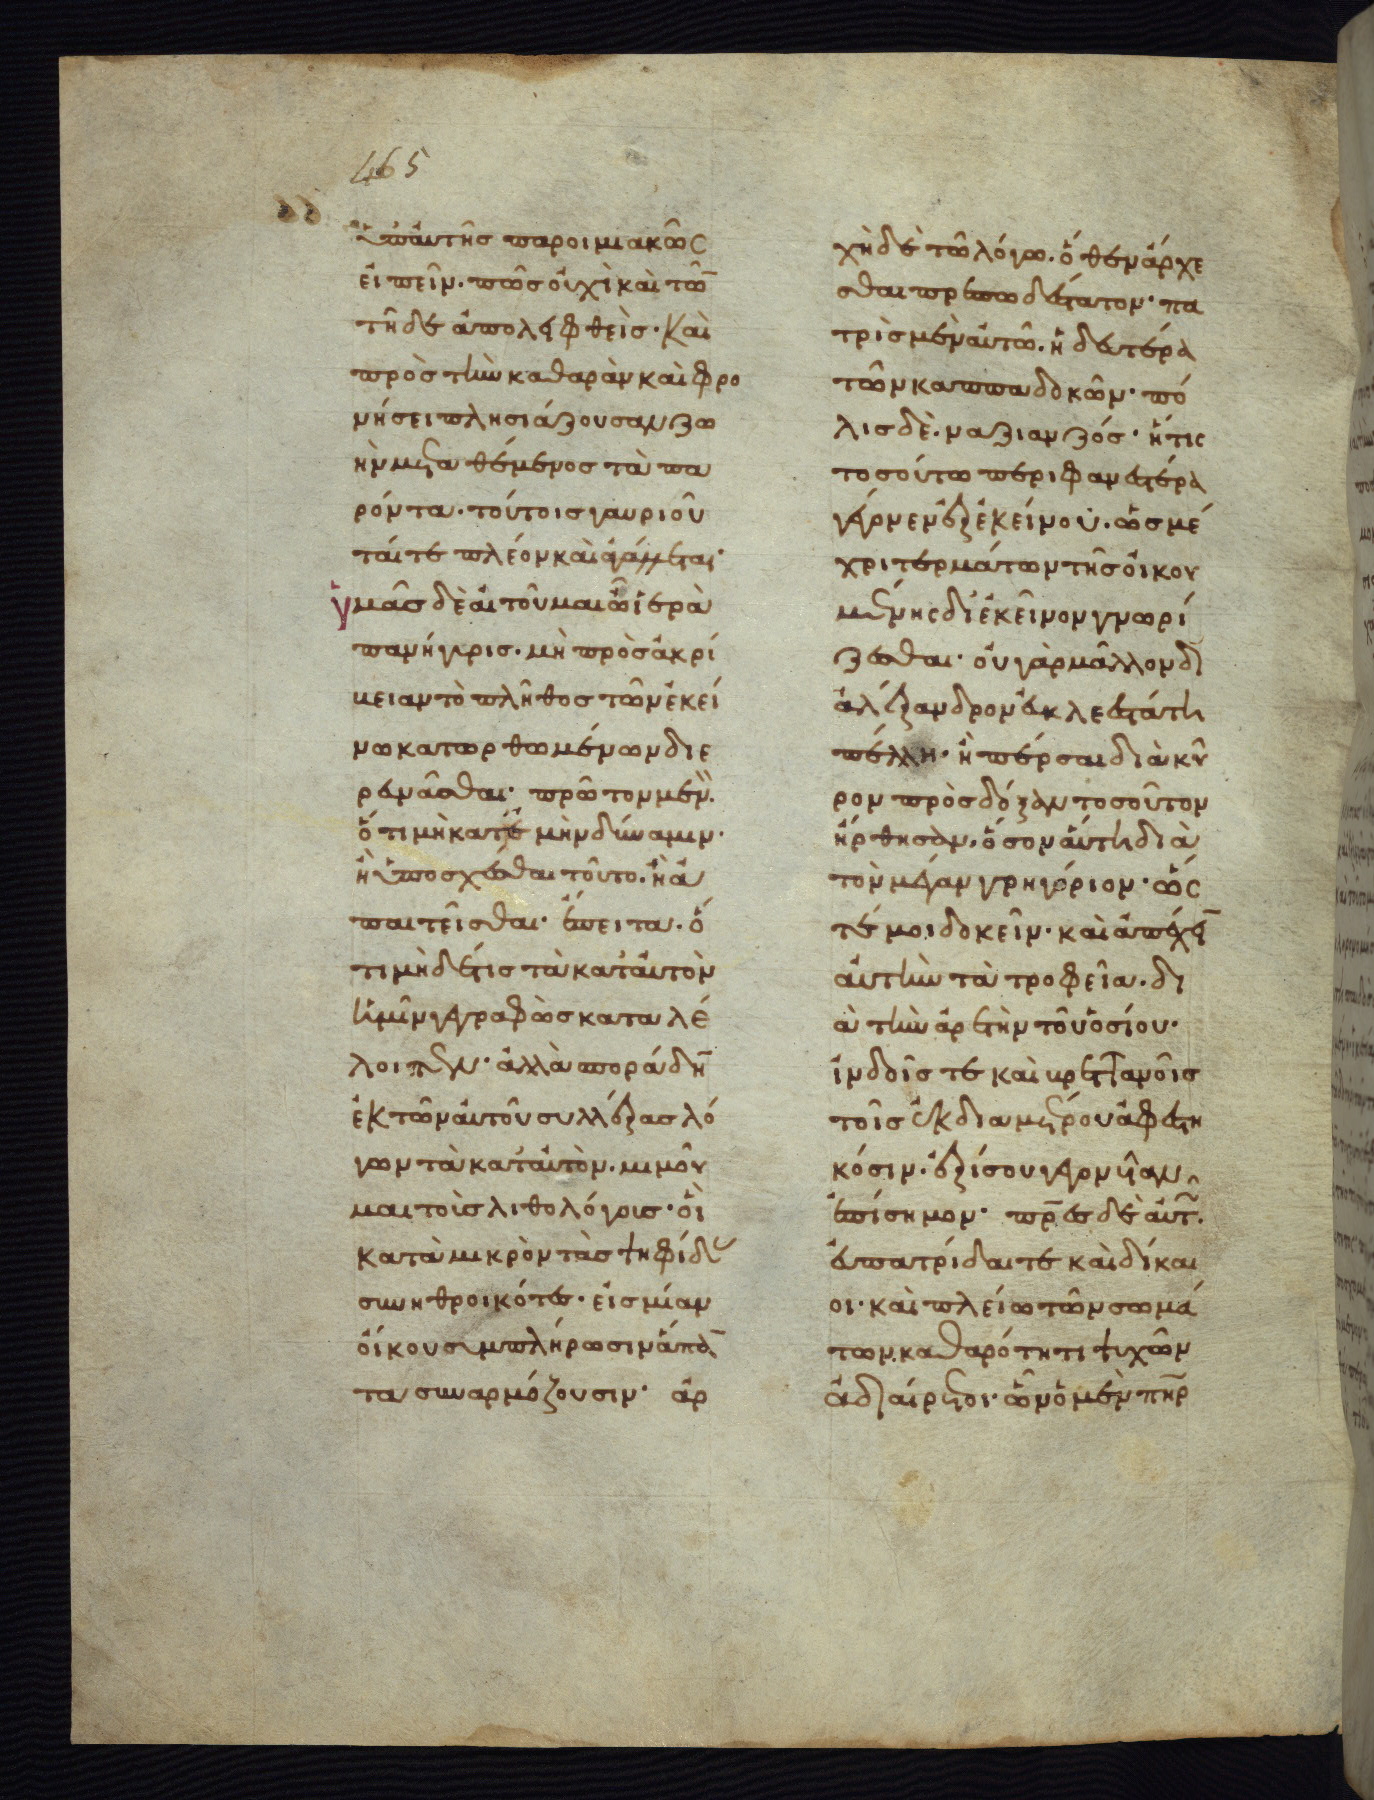 465
ὑπ' αὐτῆς παροιμιακῶς
εἰπεῖν· πῶς οὐχὶ καὶ τῶ
τῆδε ἀπολειφθεὶς· καὶ
πρὸς τὴν καθαρὰν καὶ φρο
νήσει πλησιάζουσαν ζω
ὴν μεταθέμενος τὰ πα
ρόντα· τούτοις γαυριοῦ
ταί τε πλέον καὶ
ὑμᾶς δὲ αἰτοῦμαι ὦ ἱερὰ
πανήγυρις· μὴ πρὸς ἀκρί
βειαν τὸ πλῆθος τῶν ἐκεί
νω κατωρθωμένων διε
ρευνᾶσθαι· πρῶτον μὲν·
ὅτι μὴ κατ' ἐμὴν δύναμιν·
ἢ ὑποσχέσθαι τοῦτο· ἢ ἀ
παιτεῖσθαι· ἔπειτα· ὅ
τι μὴ δέ τις τὰ κατ' αὐτὸν
ἡμῖν γεγραφὼς καταλέ
λοιπεν· ἀλλὰ σποράδην
ἐκ τῶν αὐτοῦ συλλέξας λό
γων τὰ κατ' αὐτὸν· μιμοῦ
μαι τοῖς λιθολόγοις· οἳ
κατὰ μικρὸν τὰς ψηφίδας
συνηθροικότες· εἰς μίαν
οἴκου συμπλήρωσιν ἅπαν
τα συναρμόζουσιν· ἀρ
χὴ δὲ τῶ λόγω· ὅθεν ἄρχε
σθαι πρεπωδέστατον· πα
τρὶς μὲν αὐτῶ· ἡ δευτέρα
τῶν καππαδοκῶν· πό
λις δὲ· ναζιανζός· ἥτις
τοσούτω περιφανεστέρα
γέγονεν ἐξ ἐκείνου· ὡς μέ
χρι τερμάτων τῆς οἰκου
μένης δι' ἐκεῖνον γνωρί
ζεσθαι· οὐ γὰρ μᾶλλον δι'
ἀλέξανδρον ἐκλεΐσθη
πέλλη· ἢ πέρσαι διὰ κῦ
ρον πρὸς δόξαν τοσοῦτον
ἤρθησαν· ὅσον αὕτη διὰ
τὸν μέγαν γρηγόριον· ὥς
τέ μοι δοκεῖν· καὶ ἀπέχειν
αὐτὴν τὰ τροφεῖα· δι
ὰ τὴν ἀρετὴν τοῦ ὁσίου·
ἰνδοῖς τε καὶ βρεττανοῖς
τοῖς ἐκ διαμέτρου ἀφεστη
κόσιν· ἐξ ἴσου γεγονυῖαν
ἐπίσημον· πρες δὲ αὐτῶ·
εὐπατρίδαι τε καὶ δίκαι
οι· καὶ πλείω τῶν σωμά
των καθαρότητι ψυχῶν
ἀδιαίρετοι· ὧν ὁ μὲν πηρ